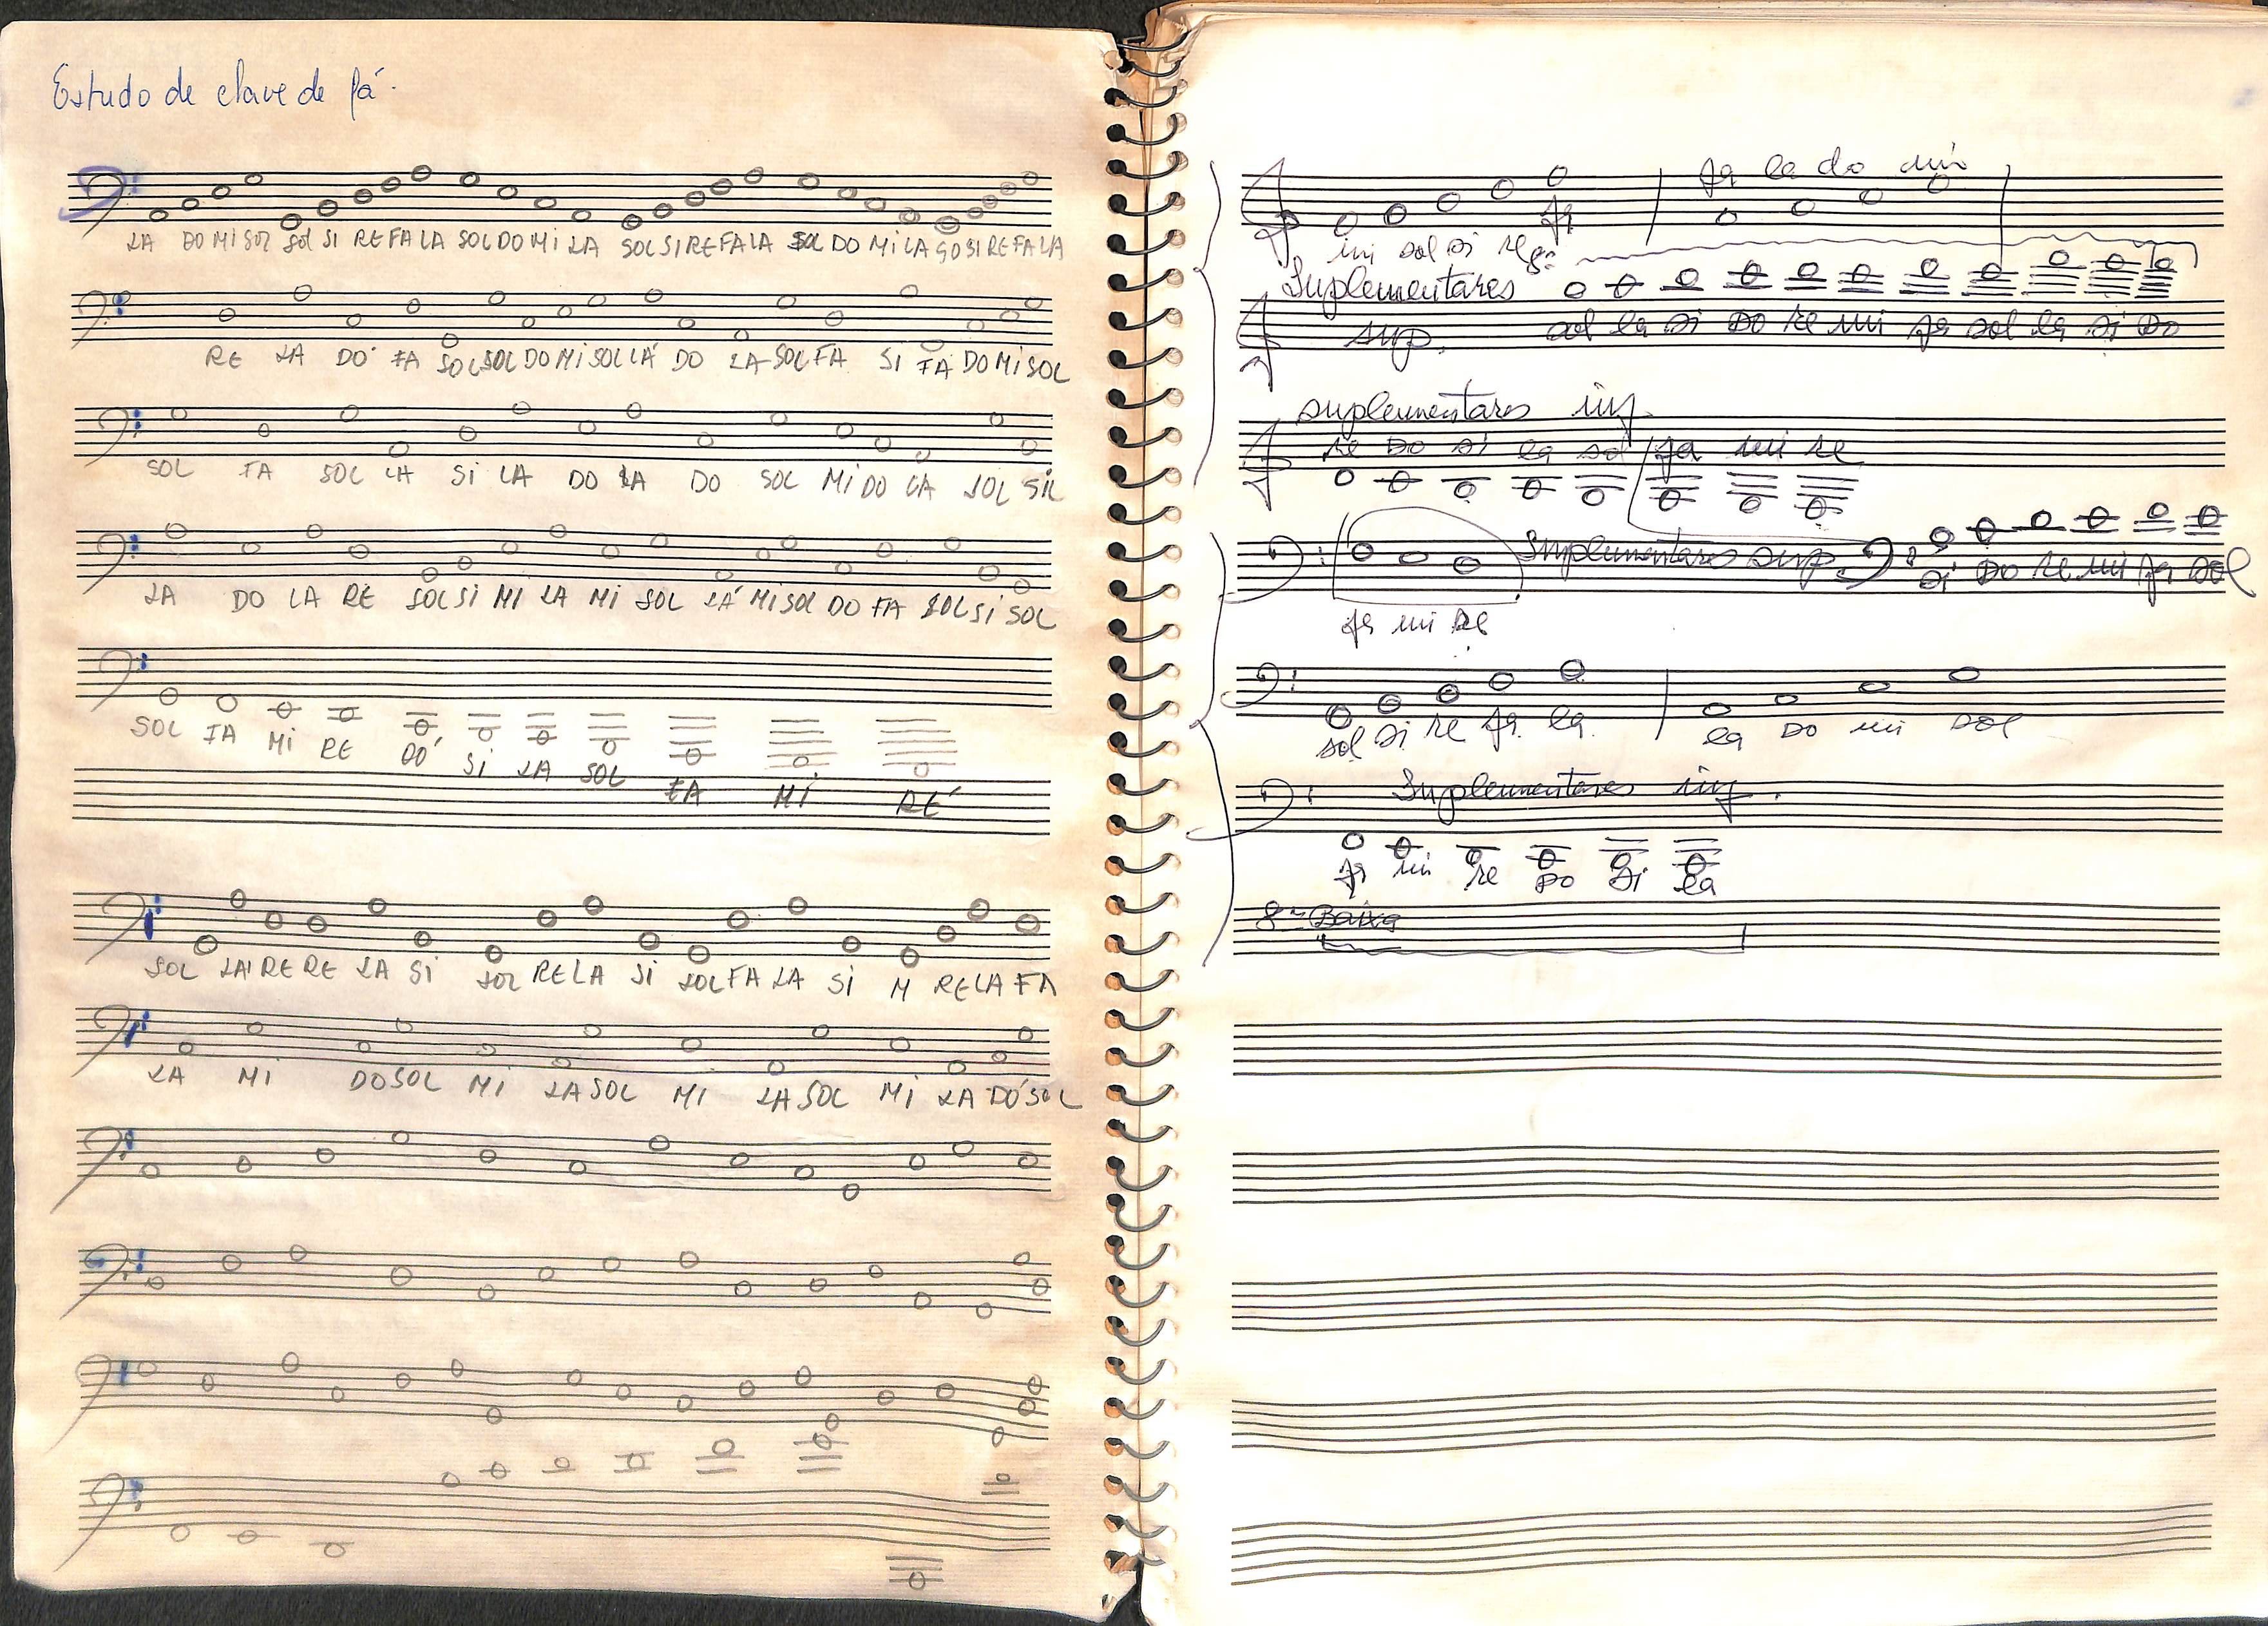 Estudo de clave de fá.
LA DO MI SOL SOL SI RE FA LA SOL DO MI LA SOL SI RE FA LA SOL DO MI LA SO SI RE FA LA
RE LA DO FA SOL SOL DO MI SOL LÁ DO LA SOL FA SI FA DO MI SOL
SOL FA SOL LA SI LA DO LA DO SOL MI DO LA SOL SI
LA DO LA RE SOL SI MI LA MI SOL LÁ MI SOL DO FA SOL SI SOL
SOL FA MI RE DÓ SI LA SOL FA MI RÉ
SOL LA RE RE LA SI SOL RE LA SI SOL FA LA SI M RE LA FA
LA MI DO SOL MI LA SOL MI LA SOL MI LA DÓ SOL
fa la do mi
mi sol si re fa
8ª
Suplementares
sup. sol la si do re mi fa sol la si do
suplementares inf.
re do si la sol fa mi re
Suplementares sup. si do re mi fa sol
fa mi re
sol si re fa la la do mi sol
Suplementares inf.
fa mi re do si la
8ª Baixa